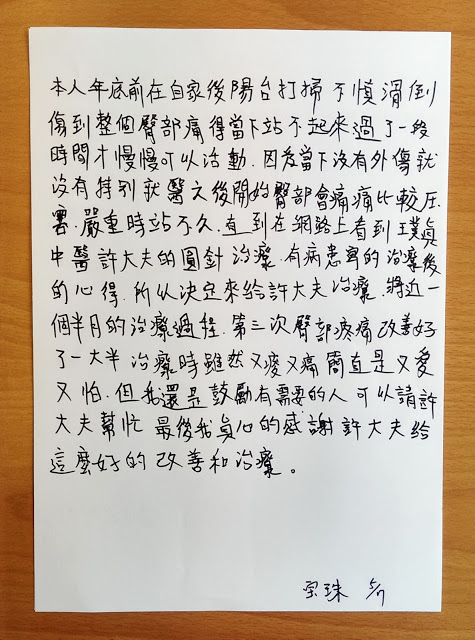 本人年底前在自家後陽台打掃不慎滑倒
傷到整個臀部痛得當下站不起來過了一段
時間才慢慢可以活動．因為當下沒有外傷就
沒有特別就醫之後開始臀部會痛痛比較厲
害．嚴重時站不久．直到在網路上看到璞真
中醫許大夫的圓針治療．有病患寫的治療後
的心得．所以決定來給許大夫治療．將近一
個半月的治療過程．第三次臀部疼痛改善好
了一大半 治療時雖然又痠又痛簡直是又愛
又怕．但我還是鼓勵有需要的人可以請許
大夫幫忙 最後我真心的感謝許大夫給
這麼好的改善和治療。
宝珠